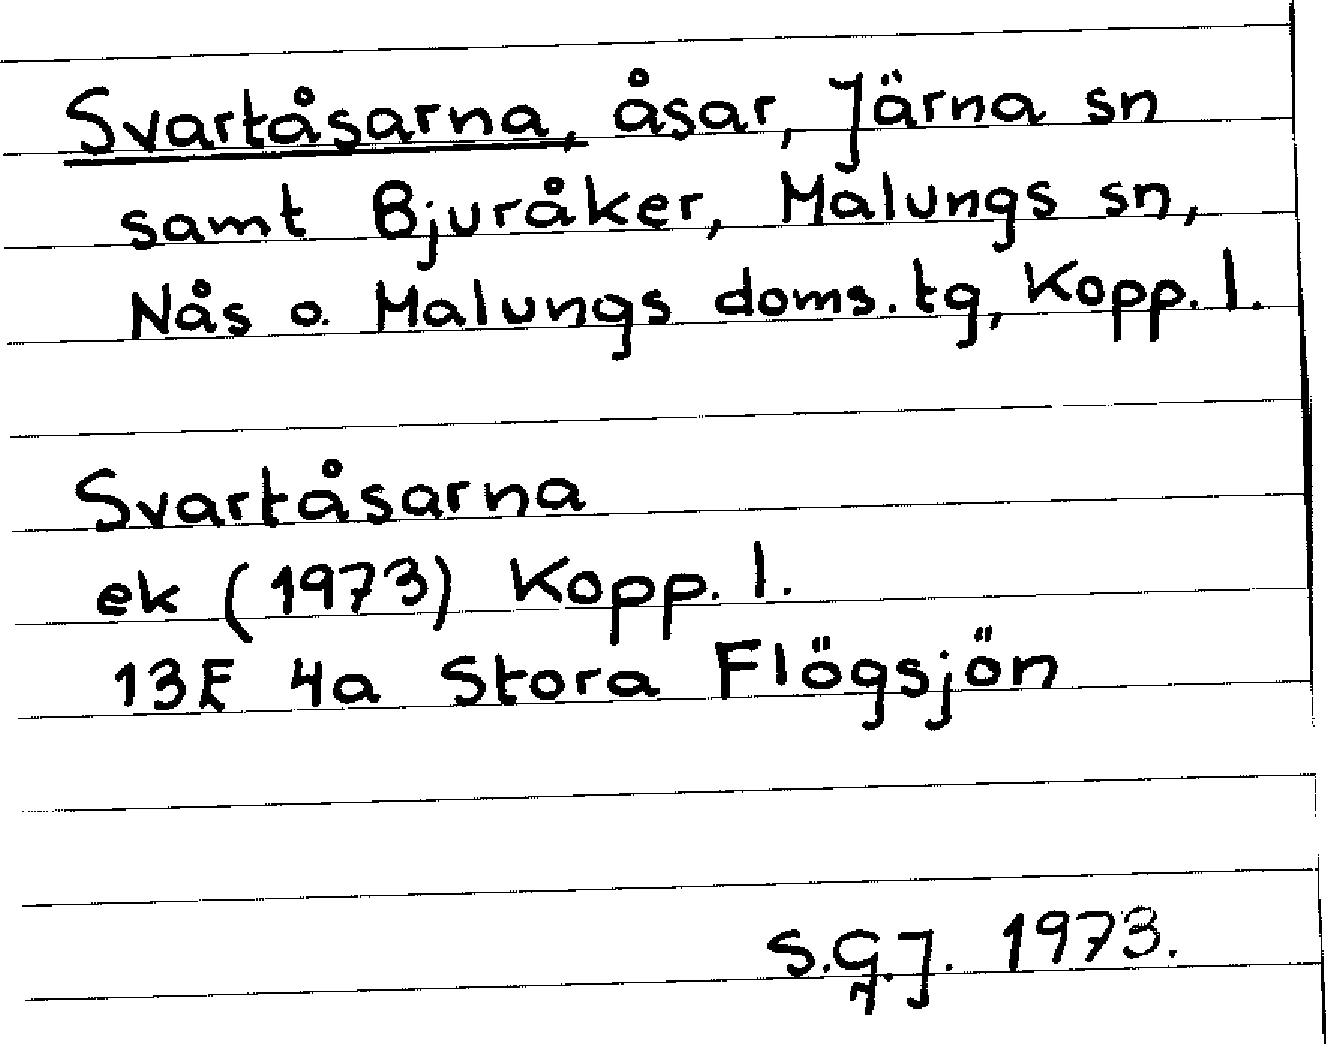 Svartåsarna, åsar, Järna sn
samt Bjuråker, Malungs sn,
Nås o. Malungs doms.tg, Kopp. l.
Svartåsarna
ek (1973) Kopp. l.
13E 4a Stora Flögsjön
S.G.J. 1973.